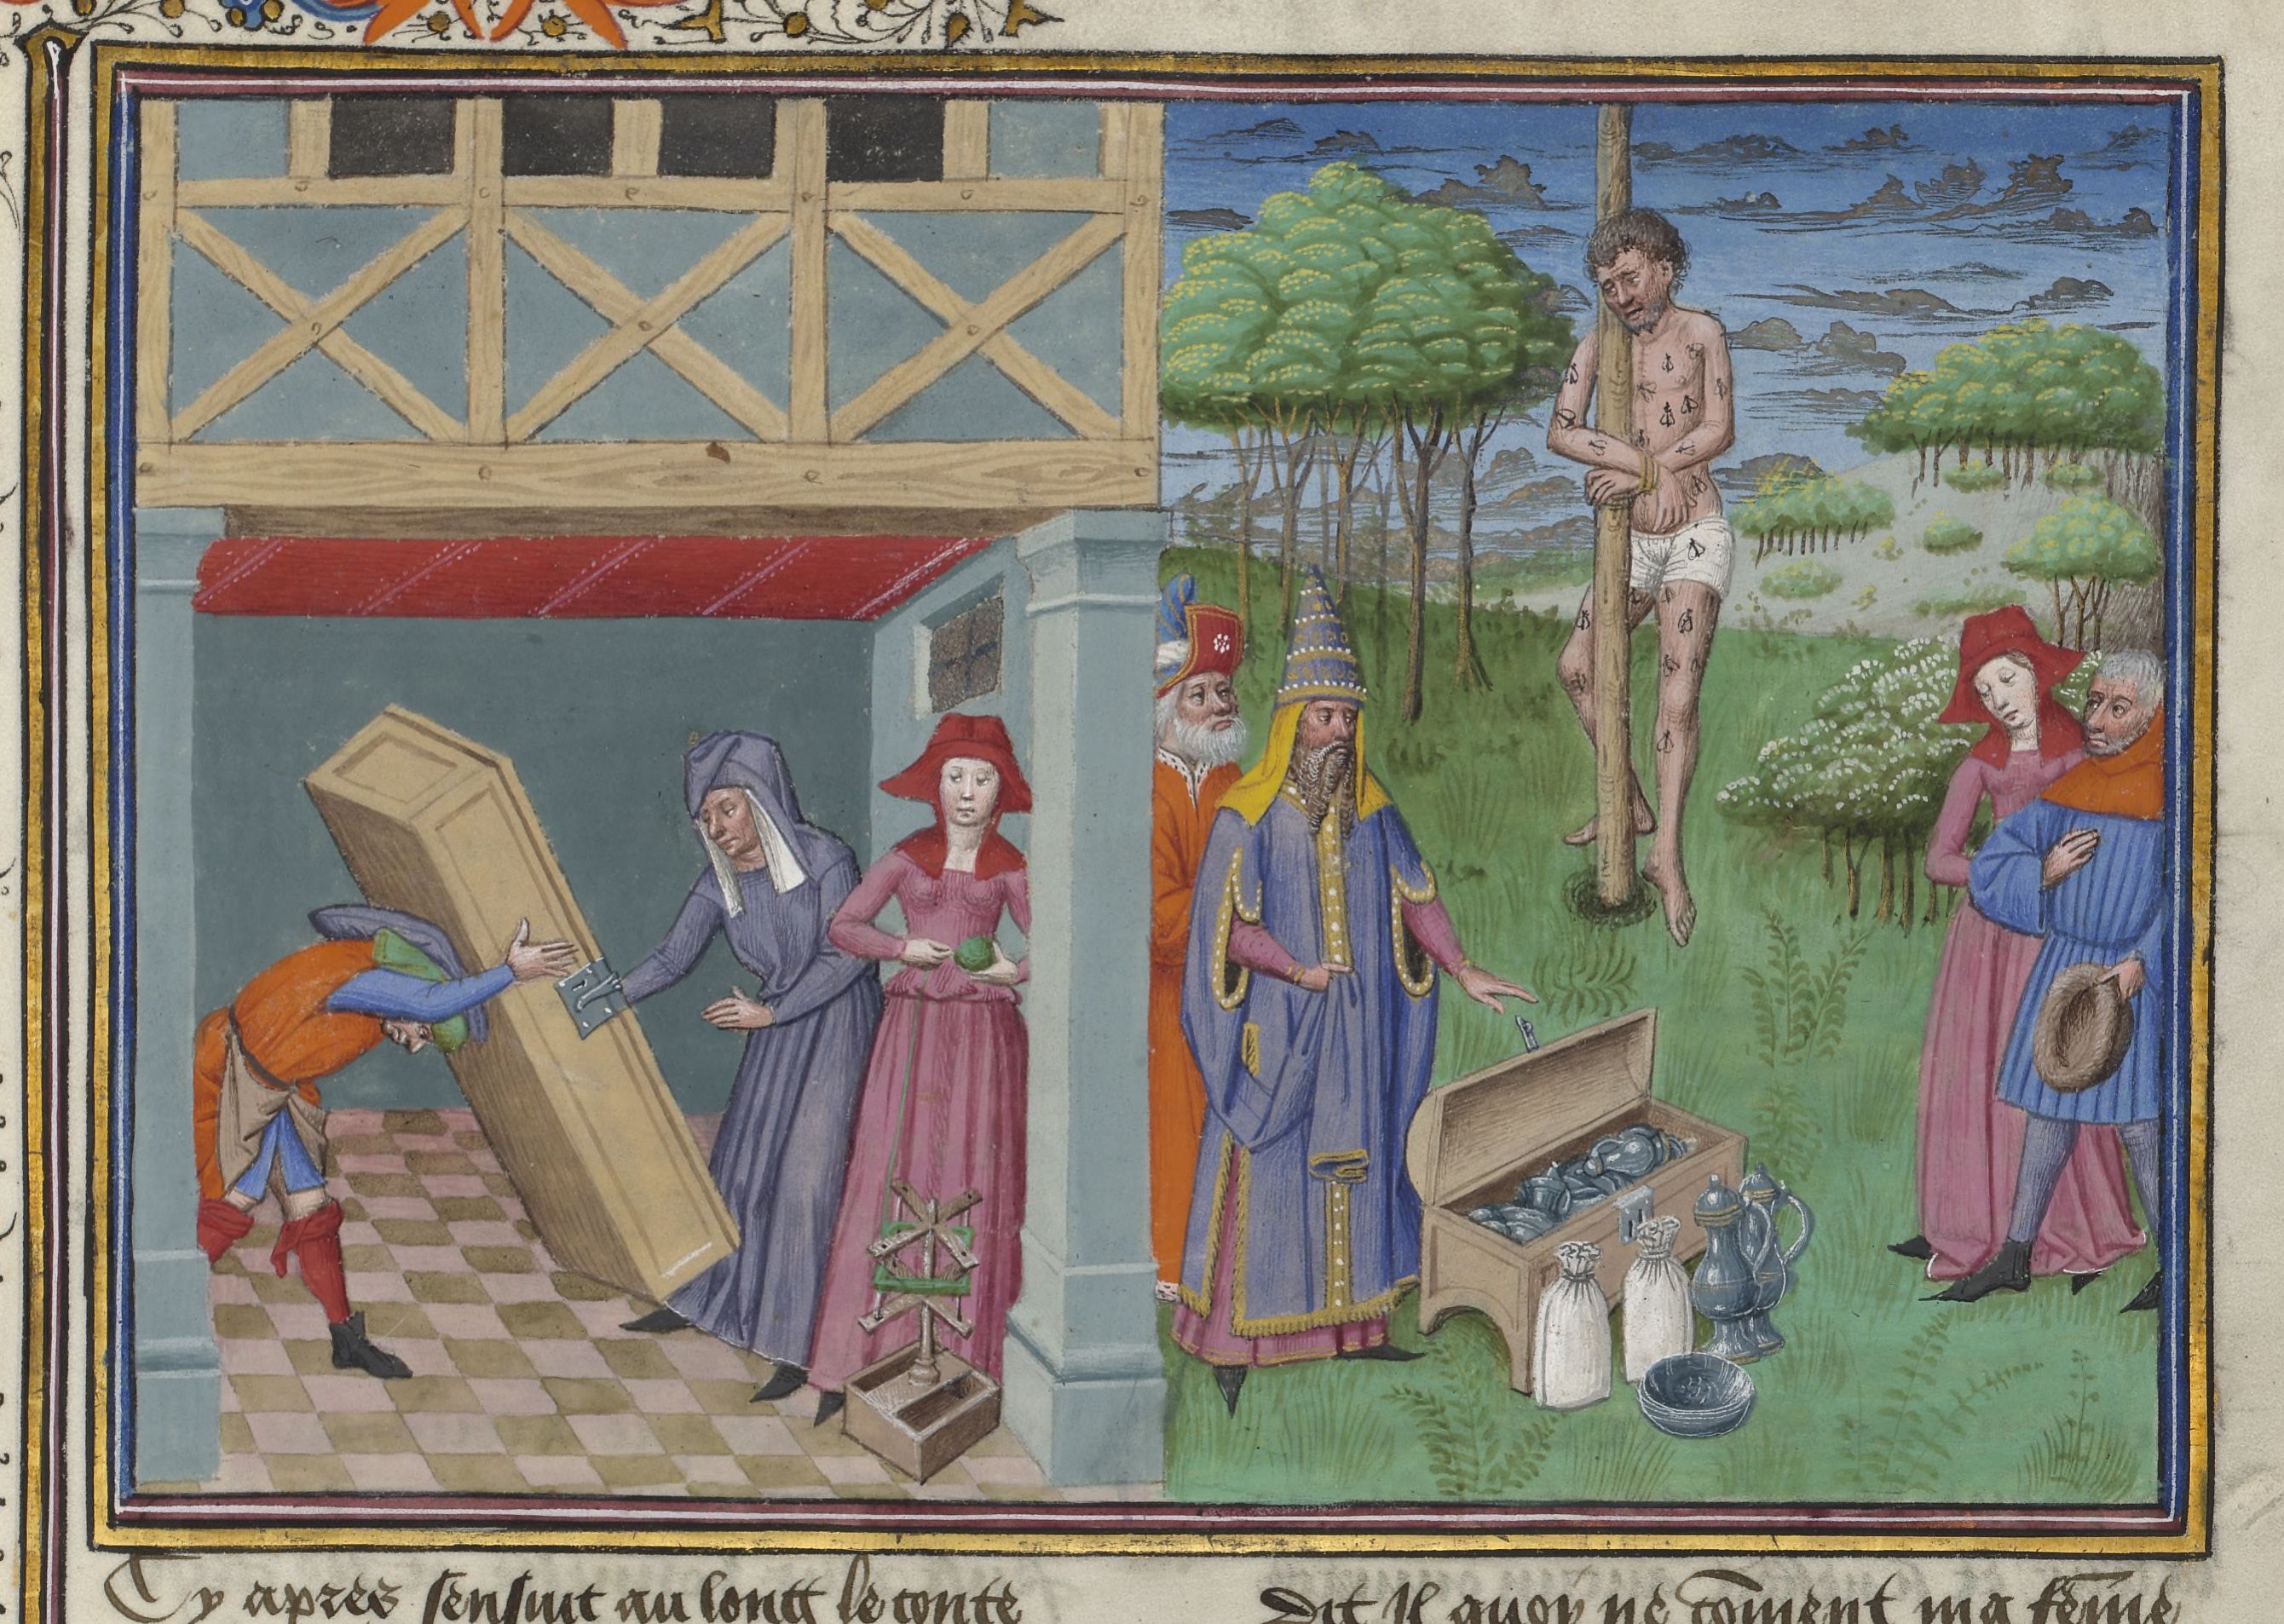 Cy apres sensuit au long le conte
Dit il quoy ne cõment ma fẽme